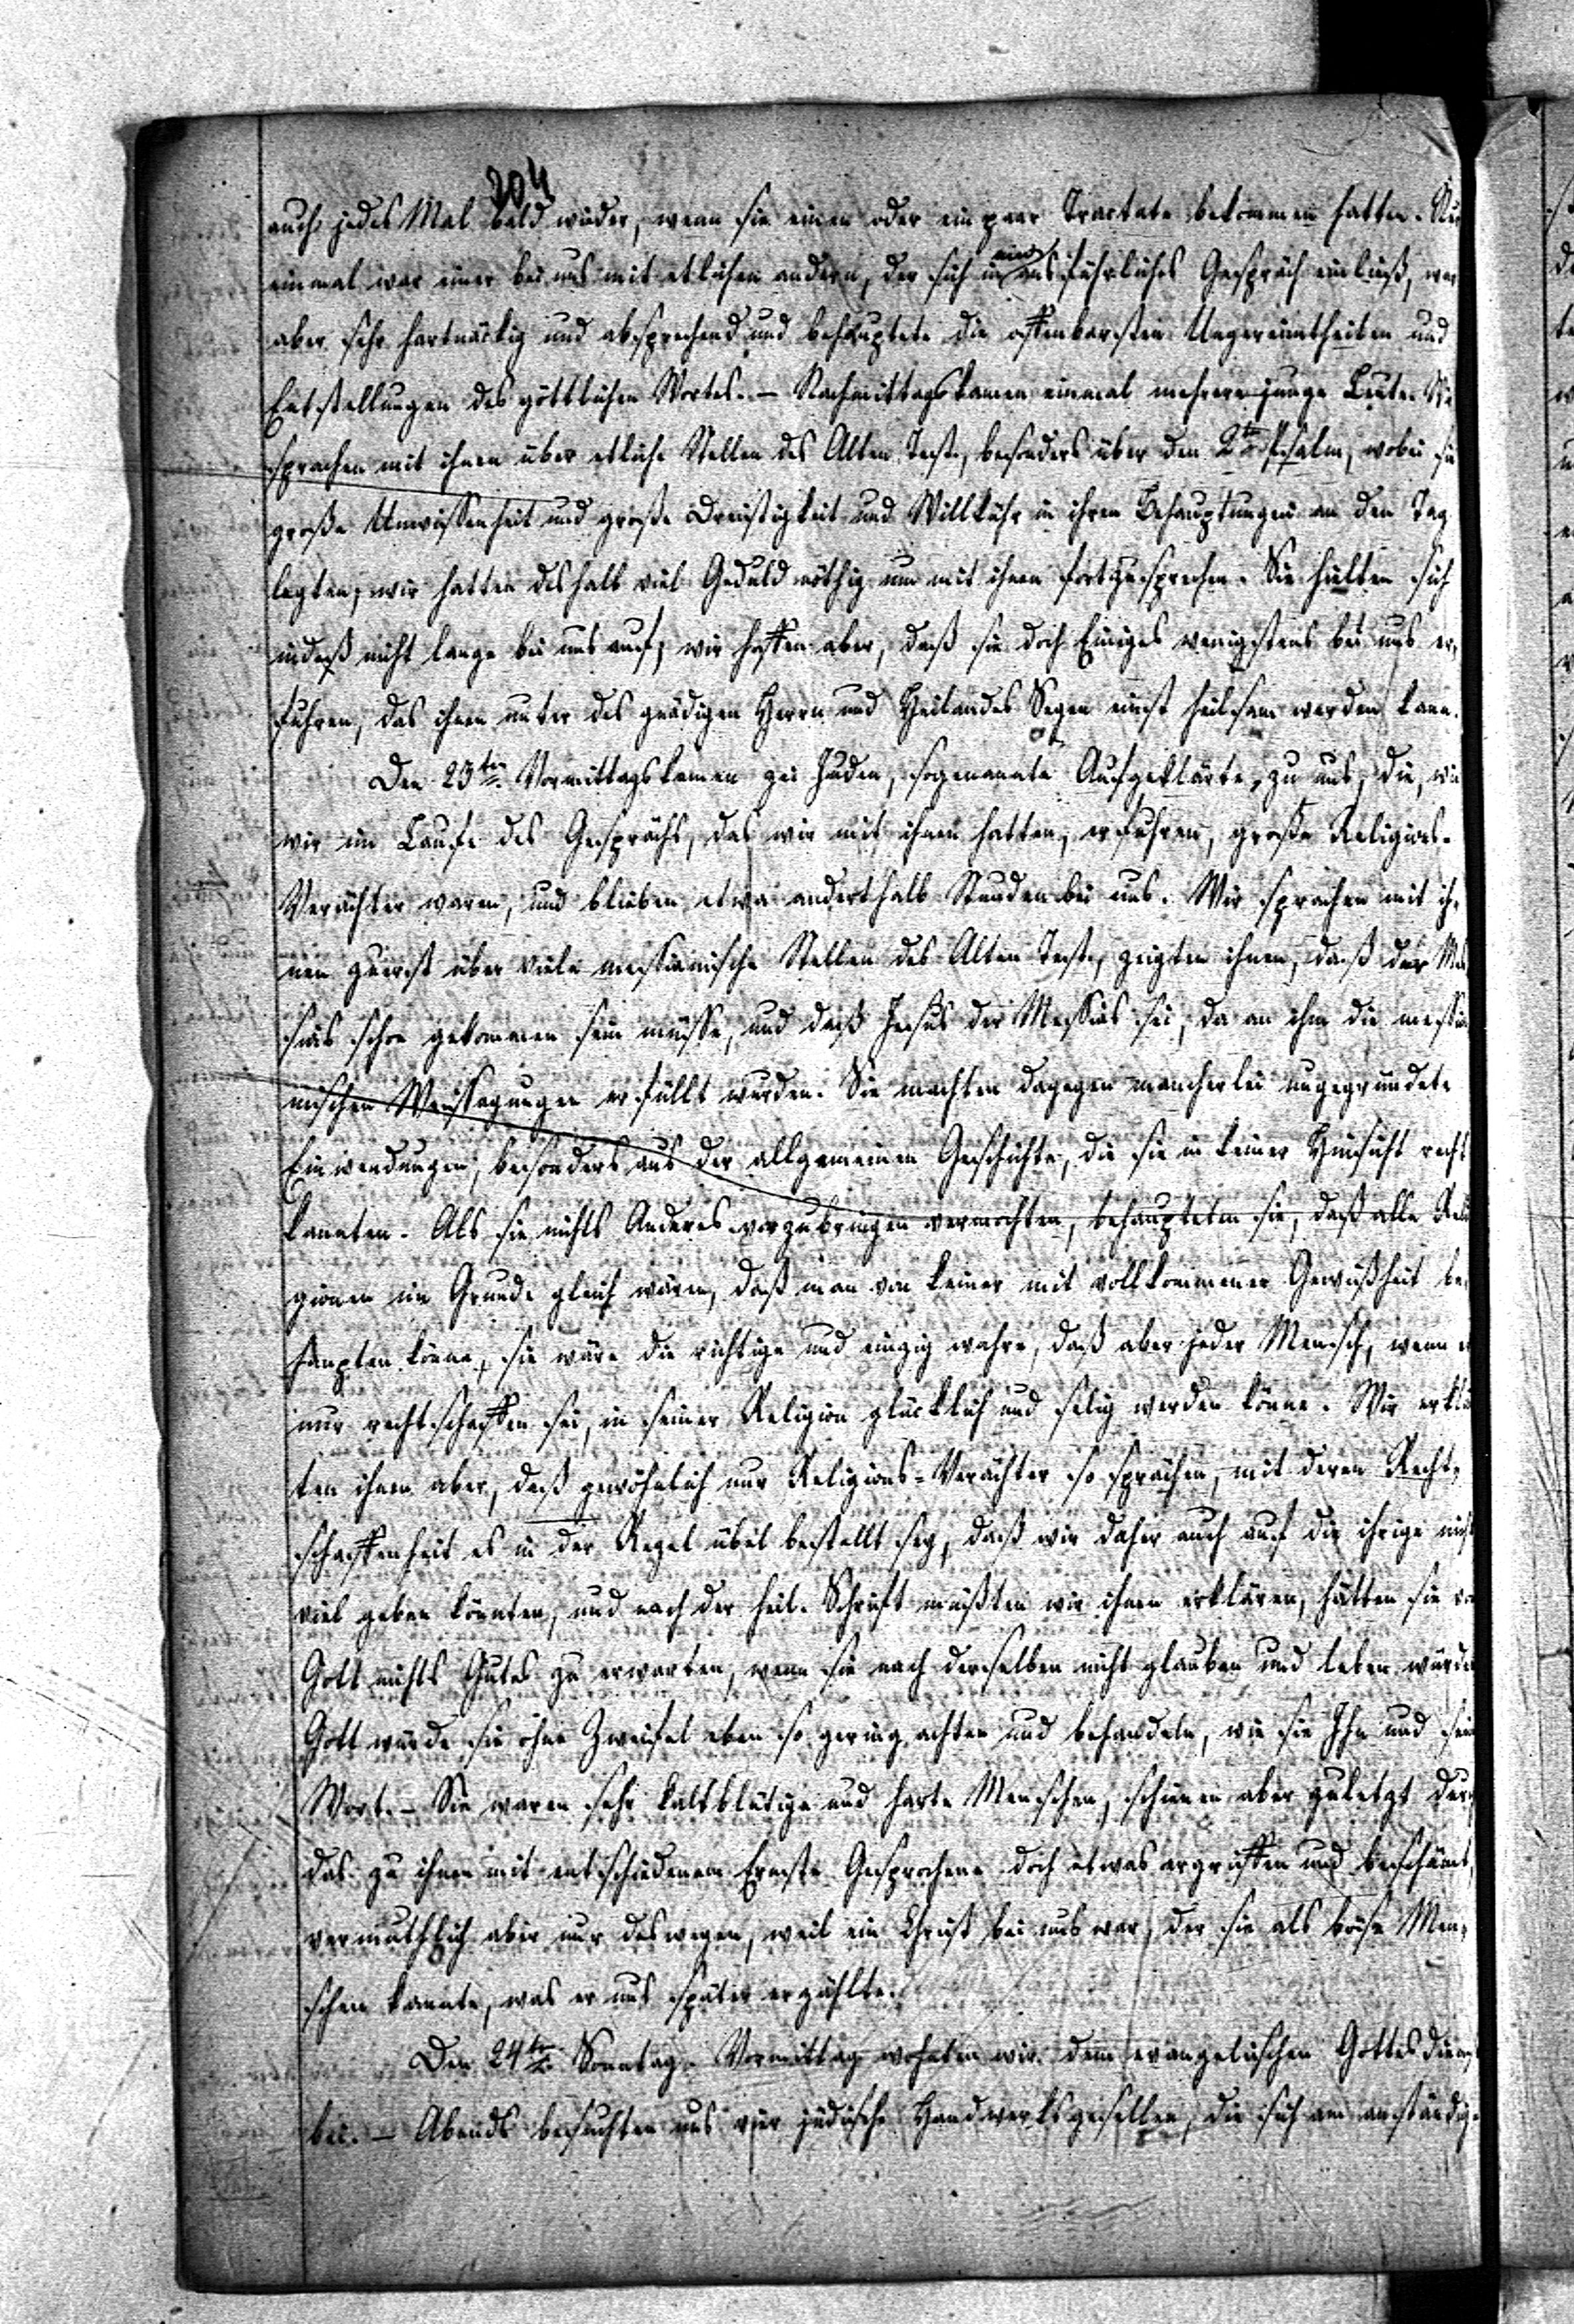 204
auch jedes Mal bald wieder, wenn sie einen oder ein paar Tractate bekommen hatten. Nur
einmal war einer bei uns mit etlichen andern, der sich in ein ausführliches Gespräch einließ, war
aber sehr hartnäckig und absprechend und behauptete die offenbarsten Ungereimtheiten und
Entstellungen des göttlichen Wortes. – Nachmittags kamen einmal mehrere junge Leute. Wir
sprachen mit ihnen über etliche Stellen des Alten Test., besonders über den 2ten Psalm, wobei sie
große Unwissenheit und große Dreistigkeit und Willkühr in ihren Behauptungen an den Tag
legten, wir hatten deshalb viel Geduld nöthig um mit ihnen fortzusprechen. Sie hielten sich
indeß nicht lange bei uns auf, wir hoffen aber, daß sie doch Einiges wenigstens bei uns er-
fuhren, das ihnen unter des gnädigen Herrn und Heilandes Segen einst heilsam werden kann.
Den 23ten Vormittags kamen zwei Juden, sogenannte Aufgeklärte, zu uns, die, wie
wir im Laufe des Gesprächs, das wir mit ihnen hatten, erfuhren, große Religions-
Verächter waren, und blieben etwa anderthalb Stunden bei uns. Wir sprachen mit ih-
nen zuerst über viele messianische Stellen des Alten Test., zeigten ihnen, daß der Mes-
sias schon gekommen sein müsse, und daß Jesus der Messias sei, da an ihm die messia-
nischen Weissagungen erfüllt wurden. Sie machten dagegen mancherlei ungegründete
Einwendungen, besonders aus der allgemeinen Geschichte, die sie in keiner Hinsicht recht
kannten. Als sie nichts Anderes vorzubringen vermochten, behaupteten sie, daß alle Reli-
gionen im Grunde gleich wären, daß man von keiner mit vollkommener Gewißheit be-
haupten könne, sie wäre die richtige und einzig wahre, daß aber jeder Mensch, wenn er
nur rechtschaffen sei, in seiner Religion glücklich und selig werden könne. Wir erklär-
ten ihnen aber, daß gewöhnlich nur Religions-Verächter so sprächen, mit deren Recht-
schaffenheit es in der Regel übel bestellt sey, daß wir daher auch auf die ihrige nicht
viel geben könnten, und nach der heil. Schrift müßten wir ihnen erklären, hätten sie von
Gott nichts Gutes zu erwarten, wenn sie nach derselben nicht glauben und leben würden
Gott würde sie ohne Zweifel eben so gering achten und behandeln, wie sie Ihn und sein
Wort. – Sie waren sehr kaltblütige und harte Menschen, schienen aber zuletzt durch
das zu ihnen mit entschiedenem Ernste Gesprochene doch etwas ergriffen und beschämt,
vermuthlich aber nur deswegen, weil ein Christ bei uns war, der sie als böse Men-
schen kannte, was er uns später erzählte.
Den 24ten Sonntag. Vormittag wohnten wir dem evangelischen Gottesdienst
bei. – Abends besuchten uns vier jüdische Handwerksgesellen, die sich am anständig-